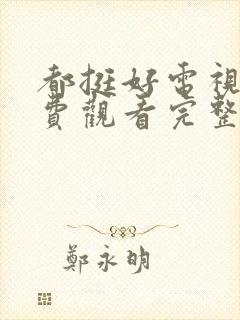 都挺好電視
費觀看完整
鄭永明